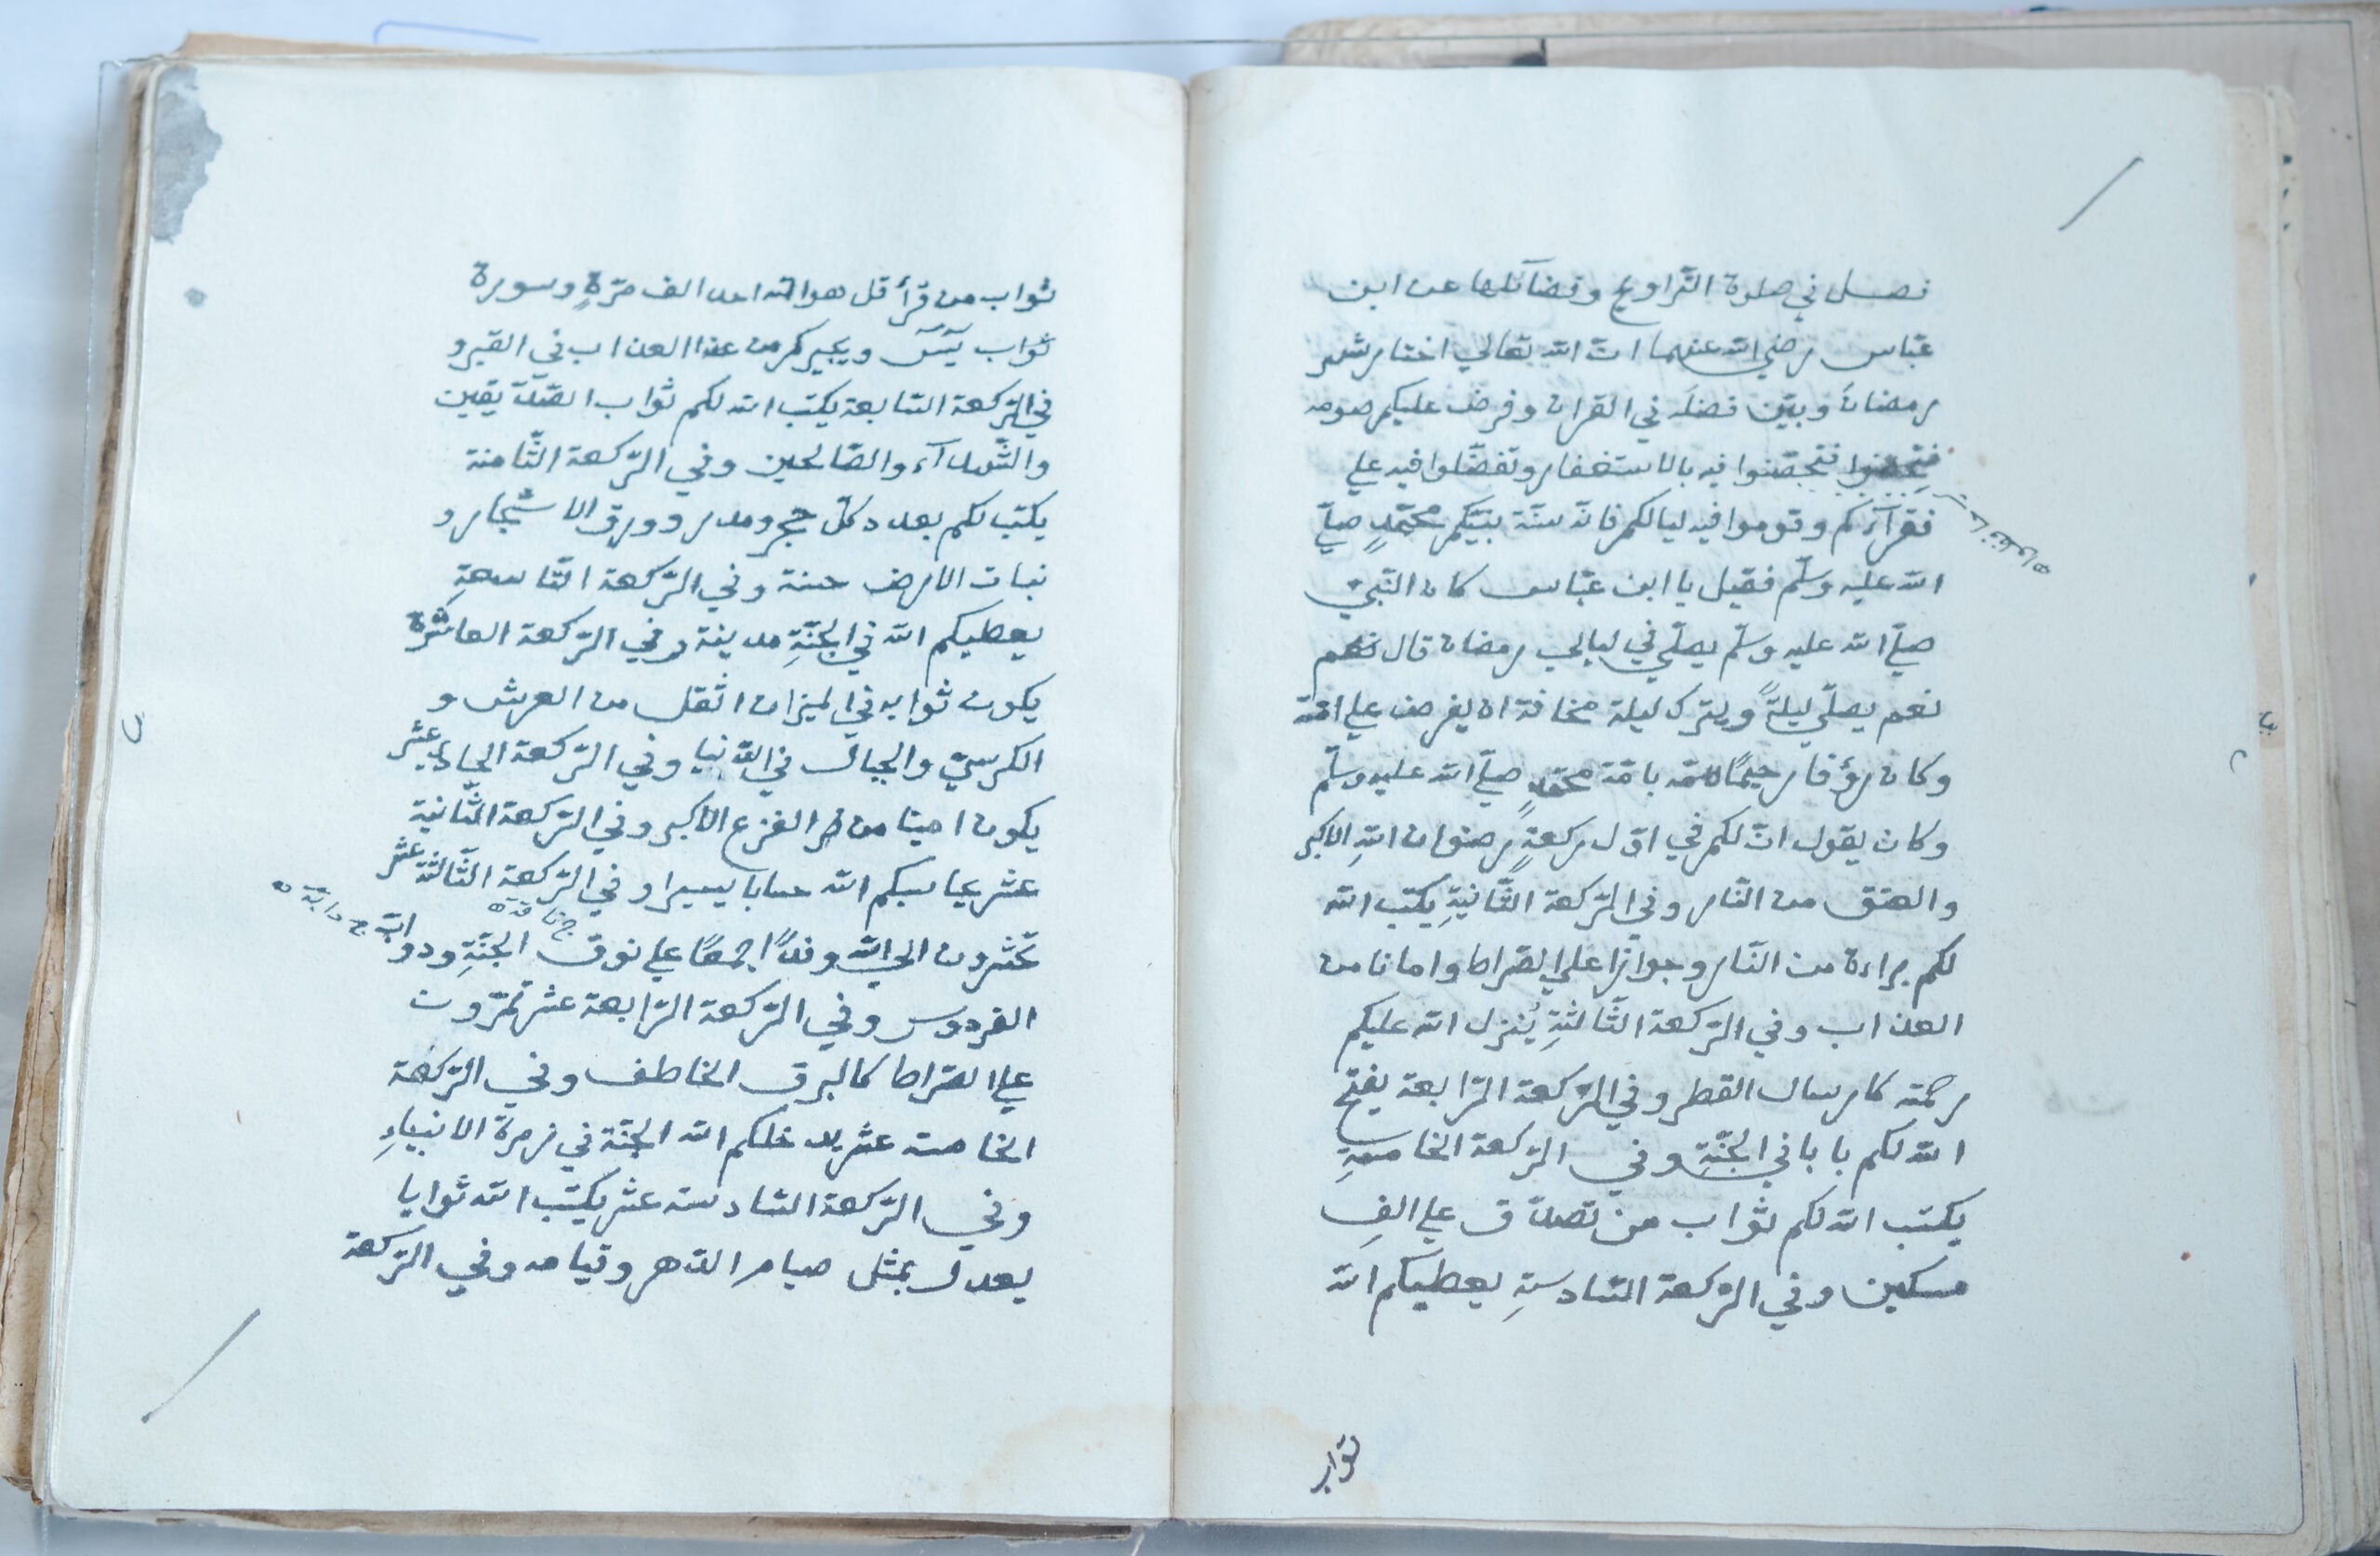 فصل في صلوة التّراويح وفضآئلها عن ابن
عبّاس رضي الله عنهما انّ الله تعالى اختار شهر
رمضانَ وبيّن فضلَه في القران وفرض عليكم صومه
فتحصّنوا فيه بالاستغفار وتفضّلوا فيه علي
فقرآءكم وقوموا فيه لياليكم فانّه سنّة نبيّكم محمّدٍ صلّي
الله عليه وسلّم فقيل يا ابن عبّاس كان النّبيّ
صلّي الله عليه وسلّم يصلّي في ليالي رمضان قال نعم
نعم يصلّي ليلةً ويترك ليلة مخافة ان يفرض علي امّته
وكان رؤفا رحيمًا بامّة محمّدٍ صلّي الله عليه وسلّم
وكان يقول انّ لكم في اوّل ركعةٍ رضوان اللهِ الاكبر
والعتق من النّار وفي الرّكعة الثّانيةِ يكتب الله
لكم براءة من النّار وجوازا علي الصّراط وامانا من
العذاب وفي الرّكعة الثّالثةِ يُنزل الله عليكم
رحمته كارسال القطر وفي الرّكعة الرّابعة يفتح
الله لكم بابا في الجنّةِ وفي الرّكعة الخامسةِ
يكتب الله لكم ثواب من تصدّق علي الفِ
مسكين وفي الرّكعة السّادسةِ يعطيكم الله
ثواب
ثواب من قرأ قل هو الله احد الف مرّةٍ وسورة
ثواب يٓسٓ ويجيركم من عذا العذاب في القبر و
في الرّكعة السّابعة يكتب الله لكم ثواب الصّدّيقين
والشّهدآء والصّالحين وفي الرّكعة الثّامنة
يكتب لكم بعدد كلّ حجر ومدر وورق الاشجار و
نبات الارض حسنة وفي الرّكعة التّاسعةِ
يعطيكم الله في الجنّةِ مدينة وفي الرّكعة العاشرة
يكون ثوابه في الميزان اثقل من العرش و
الكرسيّ والجبال في الدّنيا وفي الرّكعة الحادي عشر
يكون امينا من الفزع الاكبر وفي الرّكعة الثّانية
عشر يحاسبكم الله حسابا يسيرا وفي الرّكعة الثّالثة عشر
تحشرون الي الله وفدًا جمعًا علي نوق الجنّةِ ودوابّ
ج ناقة
ج دابّة
الفردوس وفي الرّكعة الرّابعة عشر تمرّون
علي الصّراط كالبرق الخاطف وفي الرّكعة
الخامسة عشر يدخلكم الله الجنّة في زمرة الانبياءِ
وفي الرّكعة السّادسة عشر يكتب الله ثوابا
يعدل بمثل صيام الدّهر وقيامه وفي الرّكعة